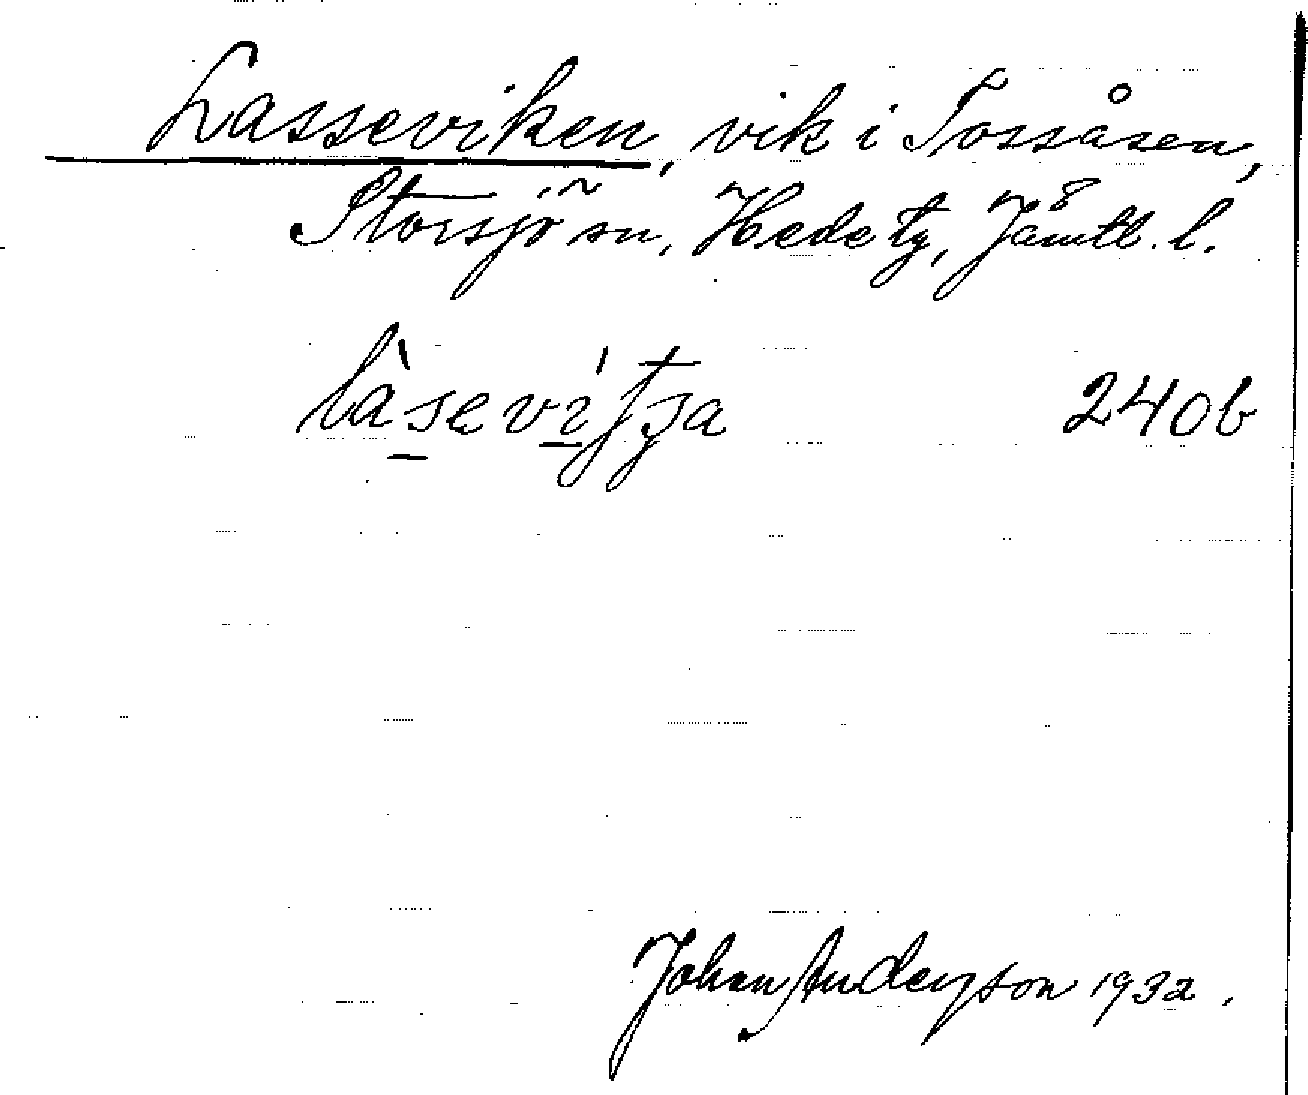 Lasseviken, vik i Tossåsen,
Storsjö sn, Hede tg, Jämtl. l.
240b
Johan Anderson 1932.